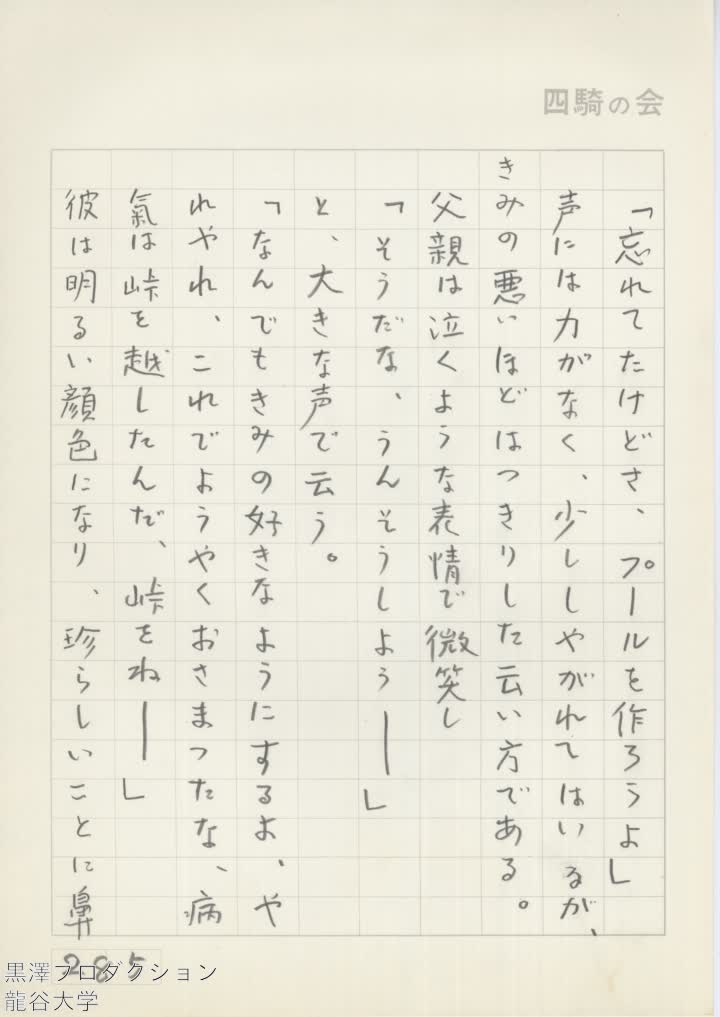 四騎の会
「忘れてたけどさ、プールを作ろうよ」
声には力がなく、少ししやがれてはいるが、
きみの悪いほどはつきりした云い方である。
父親は泣くような表情で微笑し
「そうだな、うんそうしよう――」
と、大きな声で云う。
「なんでもきみの好きなようにするよ、や
れやれ、これでようやくおさまつたな、病
氣は峠を越したんだ、峠をね――」
彼は明るい顔色になり、珍らしいことに鼻
285
黒澤プロダクション
龍谷大学